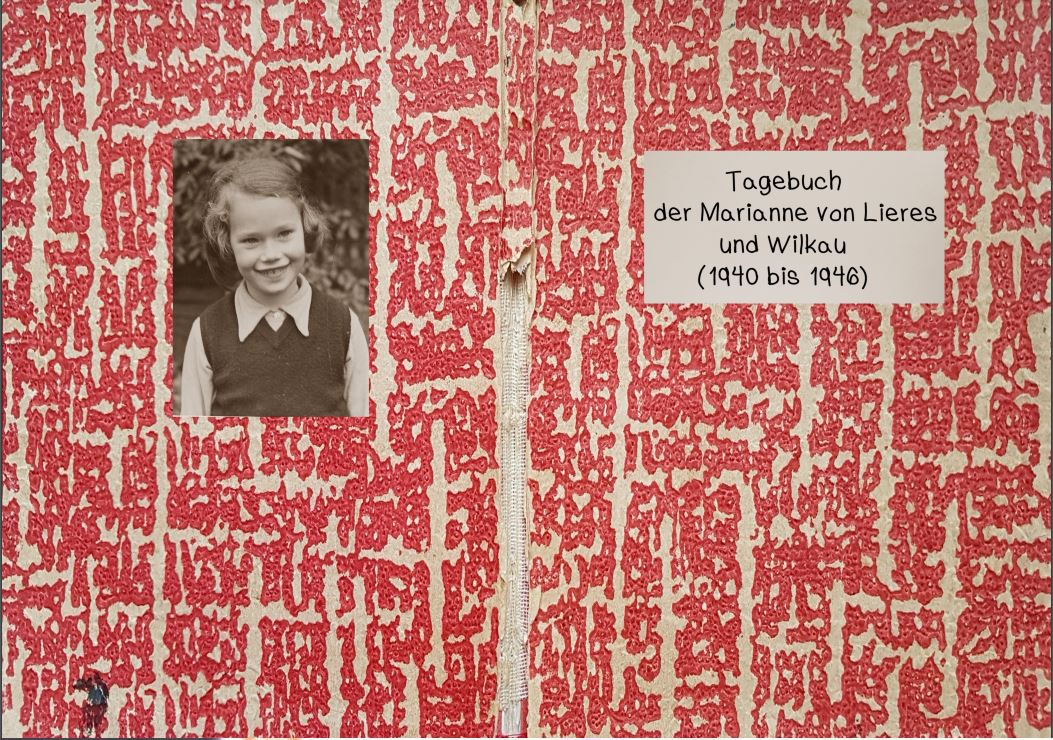 Tagebuch
der Marianne von Lieres
und Wilkau
(1940 bis 1946)